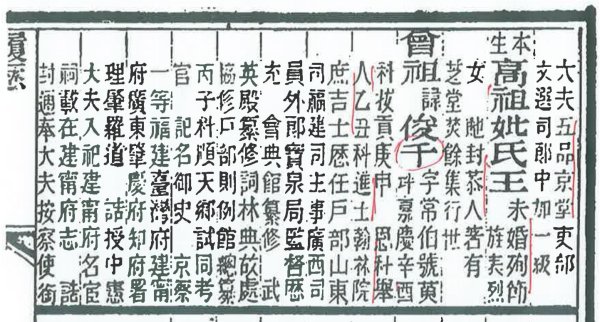 大夫五品京堂吏部
文選司郎中加一級
本生高祖妣氏王
未婚殉師
旌表烈
女 貤封恭人箸有
芝堂焚餘集行世
曾祖諱俊千
字常伯號萸
坪嘉慶辛酉
科拔貢庚申 恩科舉
人乙丑科進士翰林院
庶吉士歷任戶部山東
司福建司主事廣西司
員外郎寶泉局監督歷
充 會典館纂修 武
英殿纂修詞林典故處
協修戶部則例館總纂
丙子科順天鄉試同考
官 記名御史 京察
一等福建臺灣府建甯
府廣東肇慶府知府署
理肇羅道 誥授中憲
大夫入祀建甯府名宦
祠載在建甯府志 誥
封通奉大夫按察使銜
履歷